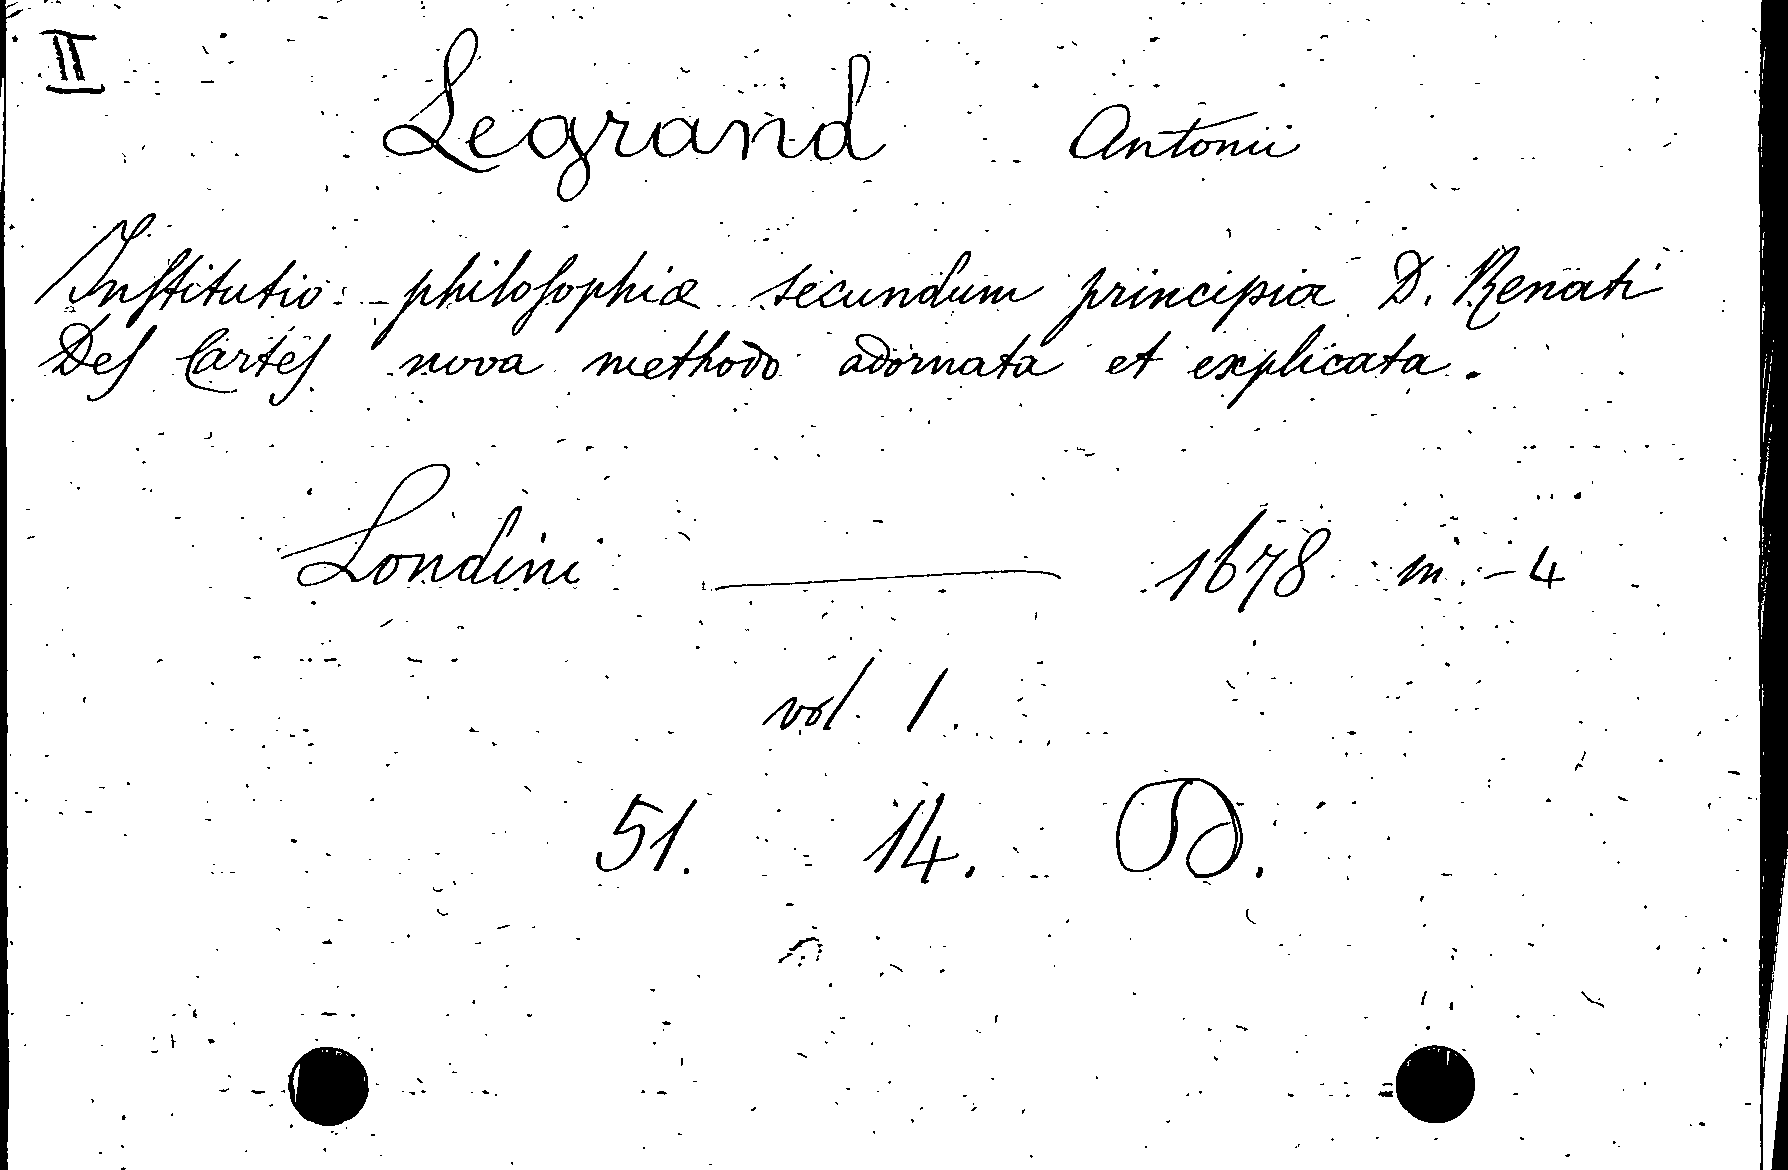 II
Legrand Antonii
Institutio philosophiæ secundum principia D. Renati
Des Cartes nova methodo adornata et explicata.
Londini — 1678 in-4
vol. 1.
51. 14. D.